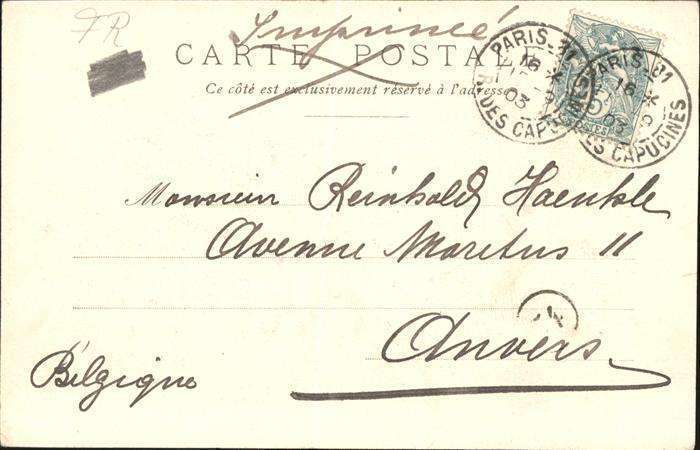 FR
Imprimé
CARTE POSTALE
Ce côté est exclusivement réservé à l'adresse
PARIS_31
16
03
R. DES CAPUCINES
PARIS_31
16
03
DES CAPUCINES
POSTES
Monsieur Reinhold Haenkle
Avenue Moretus 11
Anvers
Bélgique